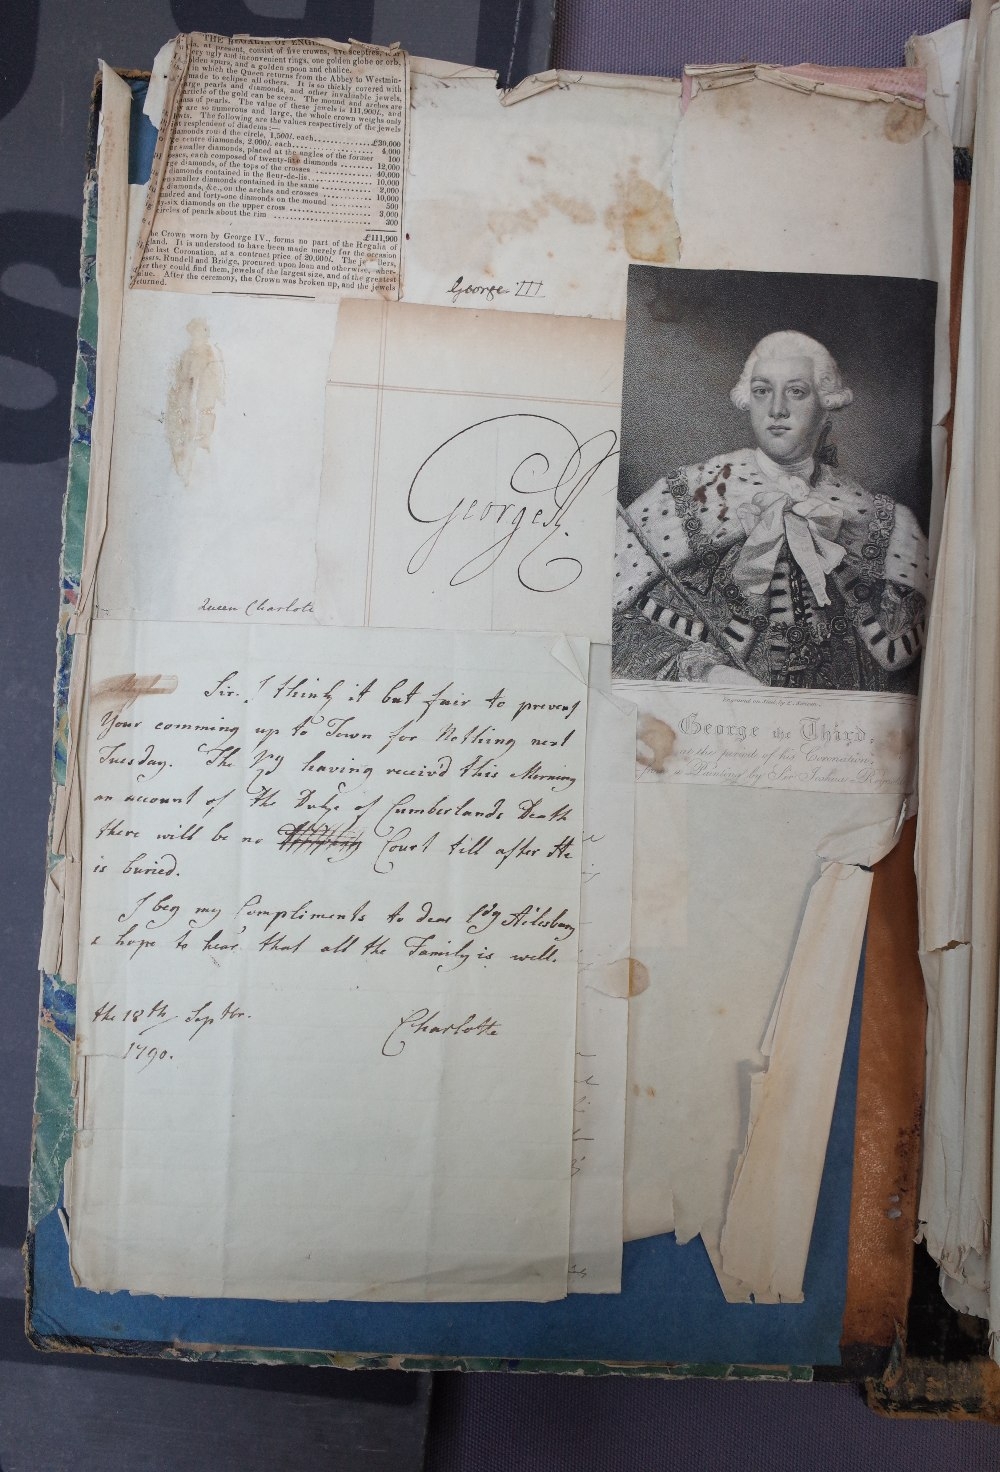 THE REGALIA OF
at present, consist of five crowns, five sceptres,
very ugly and inconvenient rings, one golden globe or orb,
golden spurs, and a golden spoon and chalice.
in which the Queen returns from the Abbey to Westmin-
made to eclipse all others. It is so thickly covered with
large pearls and diamonds, and other invaluable jewels,
particle of the gold can be seen. The mound and arches are
mass of pearls. The value of these jewels is 111,900l., and
are so numerous and large, the whole crown weighs only
The following are the values respectively of the jewels
resplendent of diadems:—
diamonds round the circle, 1,500l. each £30,000
centre diamonds, 2,000l. each 4,000
smaller diamonds, placed at the angles of the former 100
crosses, each composed of twenty-five diamonds 12,000
large diamonds, of the tops of the crosses 40,000
diamonds contained in the fleur-de-lis 10,000
smaller diamonds contained in the same 2,000
diamonds, &c., on the arches and crosses 10,000
hundred and forty-one diamonds on the mound 500
-six diamonds on the upper cross 3,000
circles of pearls about the rim 300
£111,900
the Crown worn by George IV., forms no part of the Regalia of
It is understood to have been made merely for the occasion
last Coronation, at a contract price of 20,000l. The
Rundell and Bridge, procured upon loan and otherwise, wher-
ever they could find them, jewels of the largest size, and of the greatest
value. After the ceremony, the Crown was broken up, and the jewels
returned.
George III
George R.
Queen Charlote
Engraved on Steel by
George the Third,
at the period of his Coronation,
from a Painting by Sir Joshua
Sir. I think it but fair to prevent
Your comming up to Town for Nothing next
Tuesday. The Kg having receiv'd this Morning
an account of the Duke of Cumberlands Death
there will be no Court till after He
is buried.
I beg my Compliments to dear Ldy Ailesbury
& hope to hear that all the Family is well.
the 18th Septbr. Charlotte
1790.